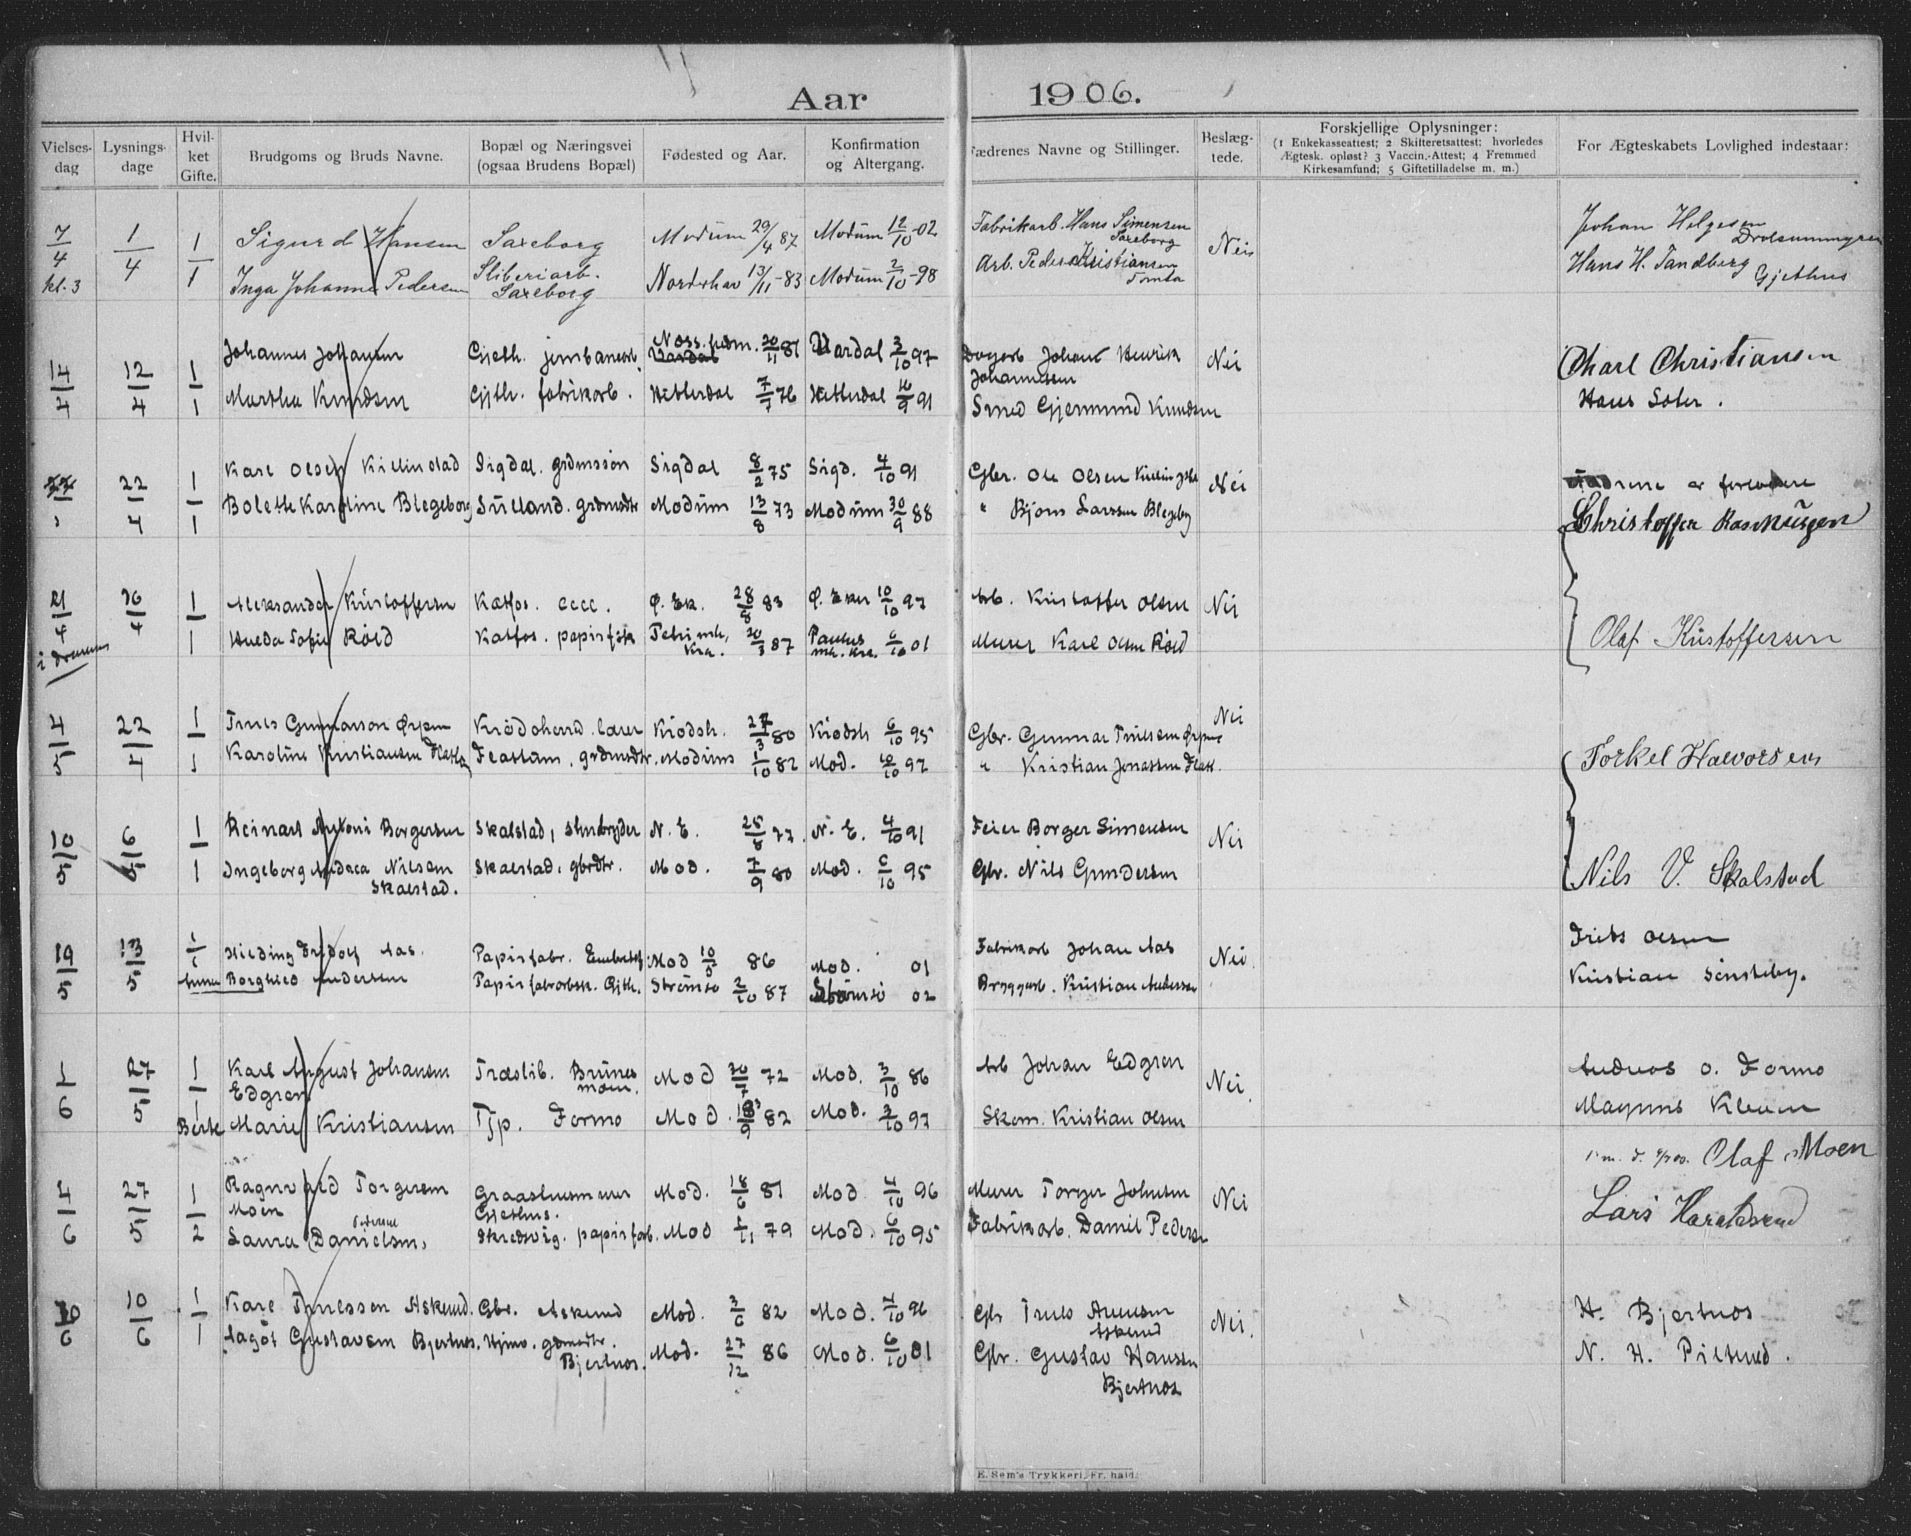 Aar 1906.
Vielses-dag Lysnings-dage Hvil-ket Gifte. Brudgoms og Bruds Navne. Bopæl og Næringsvei (ogsaa Brudens Bopæl) Fødested og Aar. Konfirmation og Altergang. Fædrenes Navne og Stillinger. Beslæg-tede. Forskjellige Oplysninger: (1 Enkekasseattest; 2 Skifteretsattest; hvorledes Ægtesk. opløst? 3 Vaccin.-Attest; 4 Fremmed Kirkesamfund; 5 Giftetilladelse m. m.) For Ægteskabets Lovlighed indestaar:
7/4 1/4 1 Sigurd Hansen Saxeborg Modum 29/4 87 Modum 12/10 -02 Fabrikarb. Hans Simensen Saxeborg Nei Johan Helgesen
kl. 3 1 Inga Johanne Pedersen Sliberiarb. Saxeborg Norderhov 13/11 -83 Modum 2/10 -98 Arb. Peder Kristiansen Tomta Hans H. Tandberg Gjethus
14/4 12/4 1 Johannes Johansen Gjeth. jernbanearb. 20/11 81 Vardal 3/10 97 Dagarb Johans Henrik Johannessen Nei Charl Christiansen
1 Martha Knudsen Gjth. fabrikarb. Hitterdal 7/7 76 Hitterdal 16/9 91 Smed Gjermund Knudsen Hans Soler.
22/4 1 Karl Olsen Killinstad Sigdal. grdmssøn Sigdal 8/2 75 Sigd. 4/10 91 Gbr. Ole Olsen Nei er forlovere
1 Bolette Karoline Blegeberg Sülland. grdmdtr Modum 13/8 73 Modum 30/9 88 " Bjørn Larssen Blegeby Christoffer Rasmussen
21/4 16/4 1 Aleksander Kristoffersen Katfos. Ø. Ek. 28/8 83 Ø. Eker 10/10 97 Arb. Kristoffer Olsen Nei
i Drammen 1 Hulda Sofie Røed Katfos. papirfbk Petri mh. Kra. 20/3 87 Paulus mh. Kra. 6/10 01 Murer Karl Olsen Røed Olaf Kristoffersen
4/5 22/4 1 Truls Gunnarson Ørpen Krødsherred lærer Krødsh. 27/3 80 Krødsh 6/10 95 Gbr. Gunnar Trulsen Ørpen Nei
1 Karoline Kristiansen Flatta Flattum. grdmdtr. Modum 1/10 82 Mod. 10/10 97 " Kristian Jonassen Flatt. Torkel Halvorsen
10/5 6/5 1 Reinart Antoni Borgersen Skalstad, stenbryder N. E. 25/8 77 N. E. 4/10 91 Feier Borger Simensen Nei
1 Ingeborg Andrea Nilsen Skalstad. Skalstad. gbrdtr. Mod. 7/9 80 Mod. 6/10 95 Gbr. Nils Gundersen Nils V. Skalstad
19/5 13/5 1 Hilding Fridolf Aas. Papirfabr. Embretsf. Mod 10/5 86 Mod. 01 Fabrikarb Johan Aas Nei. Frits Olsen
Borghild Andersen Papirfabrarbsk. Gjth. Strømsø 2/10 87 Strømsø 02 Bryggarb. Kristian Andersen Kristian Sønsteby.
1/6 27/5 1 Karl August Johansen Edgren Træslib. Brünes moen. Mod 30/7 72 Mod. 3/10 86 Arb Johan Edgren Nei. Andreas O. Formo
1 Marie Kristiansen Tjp. Formo Mod. 18/9 82 Mod. 3/10 97 Skom. Kristian Olsen Magnus Kleven
4/6 27/5 1 Ragnvald Torgersen Moen Graastensmurer Gjethus. Mod. 18/6 81 Mod 4/10 96 Murer Torger Johnsen Nei Olaf Moen
2 Laura Danielsen, Pedersen Skredsvig. papirfarb. Mod 1/11 79 Mod. 6/10 95 Fabrikarb. Daniel Pedersen Lars Haraldsrud
10/6 10/6 1 Karl Trulssen Askerud. Gbr. Askerud Mod. 3/6 82 Mod. 4/10 96 Gbr Truls Arnesen Askerud Nei. H. Bjertnæs
1 Aagot Gustavsen Bjertnæs. Hjme. gdmdtr. Bjertnæs. Mod. 27/12 86 Mod. 6/10 01 Gbr. Gustav Hansen Bjertnæs N. H. Pilterud.
E. Sem's Trykkeri, Fr. hald.